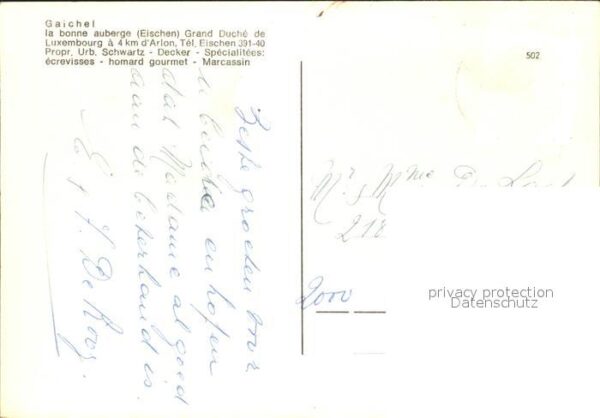 Gaichel
la bonne auberge (Eischen) Grand Duché de
Luxembourg à 4 km d'Arlon, Tél. Eischen 391-40
Propr. Urb. Schwartz - Decker - Spécialitées:
écrevisses - homard gourmet - Marcassin
502
Beste groeten voor
U beiden en hopen
dat Madame al goed
aan de beterhand is.
De Rooy.
Mr & Mme De
218
2000
privacy protection
Datenschutz